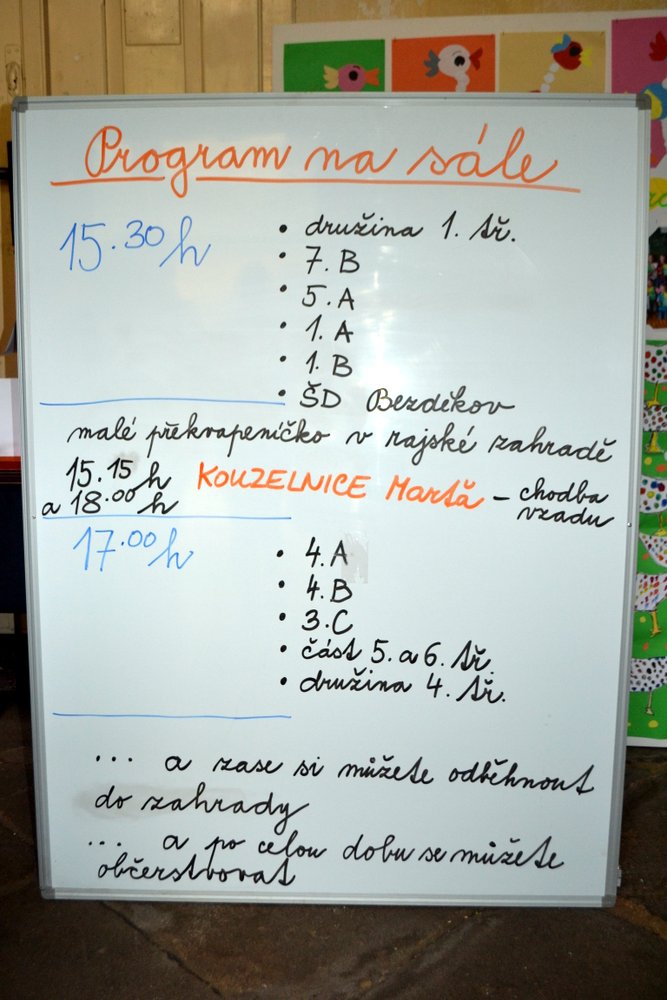 Program na sále
15.30 h
• družina 1. tř.
• 7. B
• 5. A
• 1. A
• 1. B
• ŠD Bezděkov
malé překvapeníčko v rajské zahradě
15.15 h
a 18.00 h
KOUZELNICE Martă – chodba
vzadu
17.00 h
• 4. A
• 4. B
• 3. C
• část 5. a 6. tř.
• družina 4. tř.
... a zase si můžete odběhnout
do zahrady
... a po celou dobu se můžete
občerstvovat